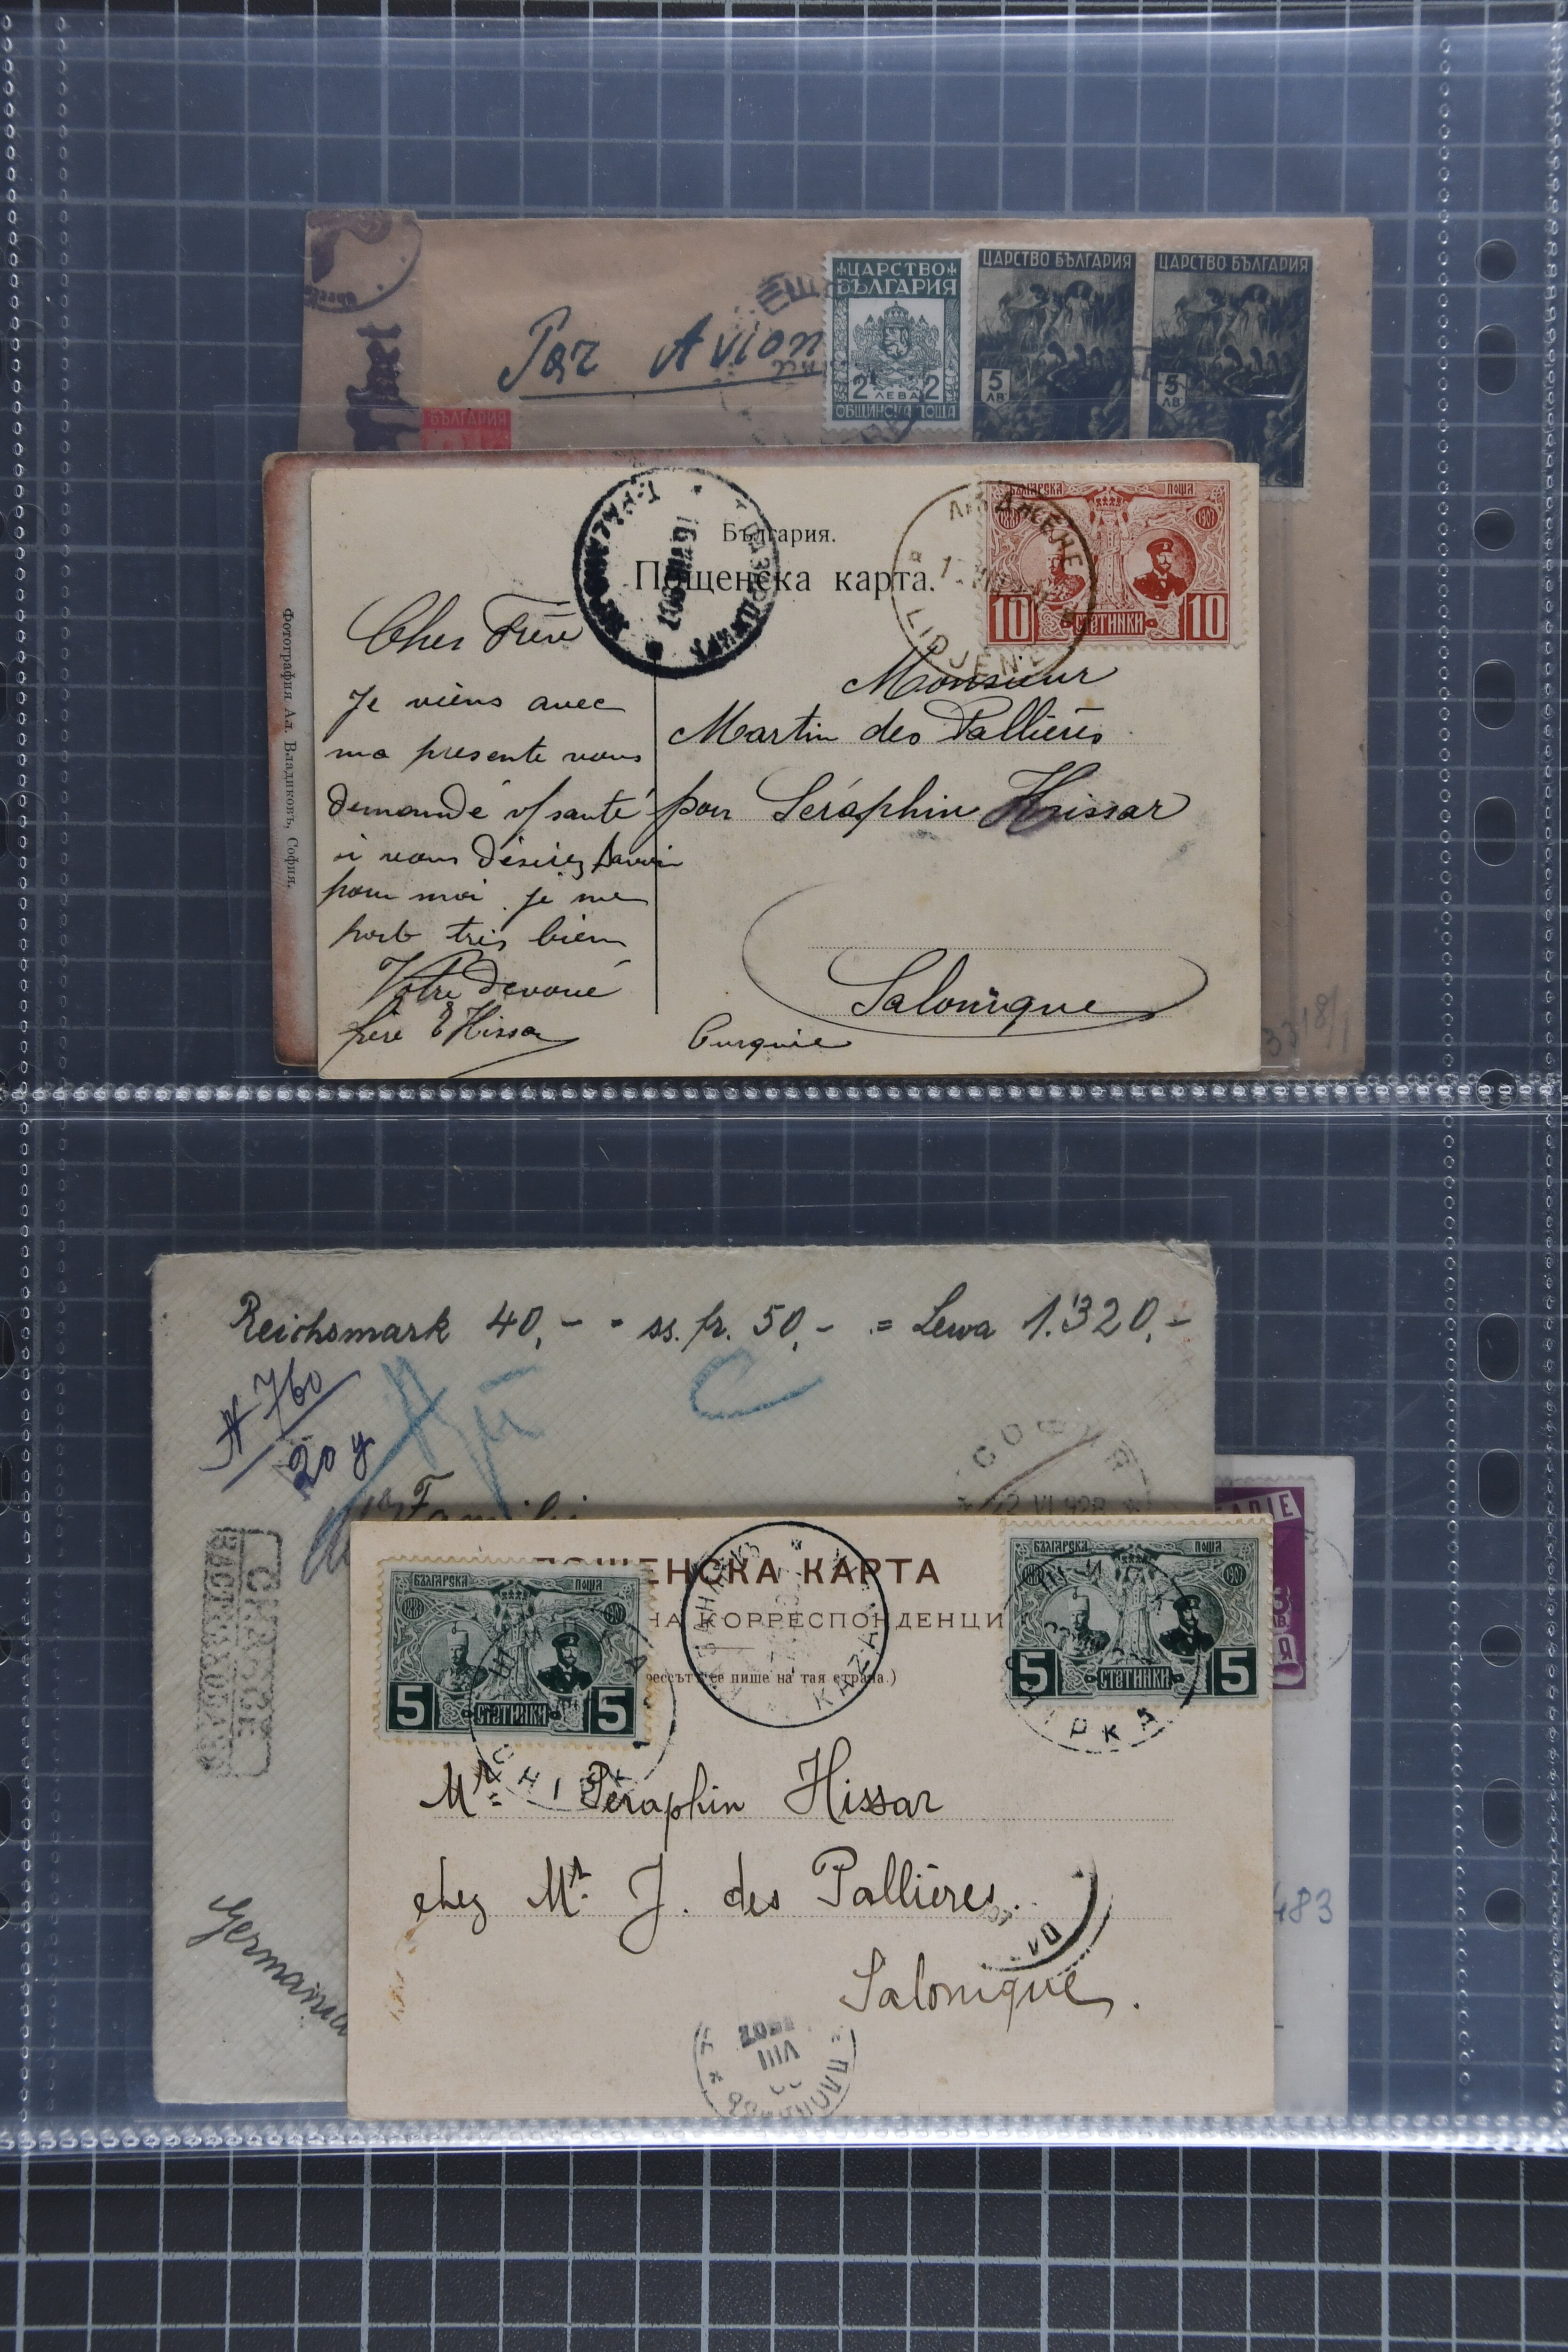 ЦАРСТВО
БЪЛГАРИЯ
2 ЛЕВА 2
ОБЩИНСКА ПОЩА
ЦАРСТВО БЪЛГАРИЯ
5
ЛВ
ЦАРСТВО БЪЛГАРИЯ
5
ЛВ
Par Avion
БЪЛГАРИЯ
Фотография Ал. Владиковъ, София.
3318/1
България.
Пощенска карта.
БЪЛГАРСКА ПОЩА
1907
10 СТОТИНКИ 10
ЛЪДЖЕНЕ
LIDJENE
Cher Frère
Je viens avec
ma presente vous
demandé v/ santé
si vous désirez savoir
pour moi je me
porte très bien
Votre devoué
frère E Hissar
Monsieur
Martin des Pallières
pour Séraphin Hissar
Salonique
Turquie
Reichsmark 40,- - ss. fr. 50,- = Lewa 1.320,-
N 760
20 g
СОФИЯ
12 VI 928
Germania
483
ПОЩЕНСКА КАРТА
НА КОРРЕСПОНДЕНЦИ
се пише на тая страна.)
БЪЛГАРСКА ПОЩА
1907
5 СТОТИНКИ 5
БЪЛГАРСКА ПОЩА
1907
5 СТОТИНКИ 5
KAZAN
Mr Séraphin Hissar
chez Mr. J. des Pallières.
Salonique.
VIII